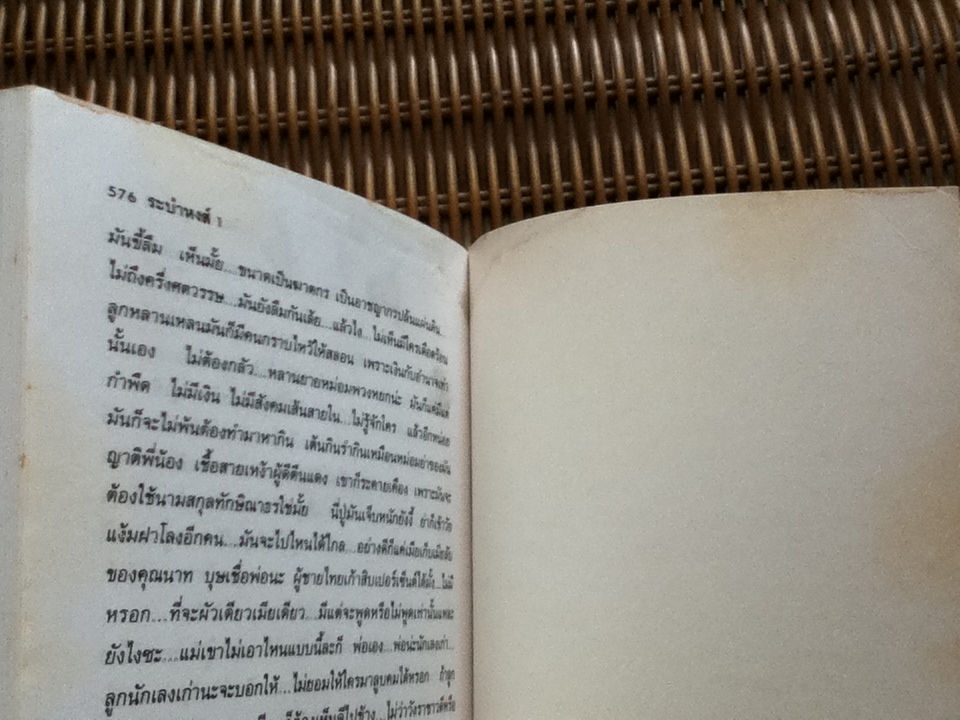 576 ระบำหงส์ 1
มันขี้ลืม เห็นมั้ย...ขนาดเป็นฆาตกร เป็นอาชญากรปล้นแผ่นดิน...
ไม่ถึงครึ่งศตวรรษ...มันยังลืมกันเล้ย...แล้วไง...ไม่เห็นมีใครเดือดร้อน
ลูกหลานเหลนมันก็มีคนกราบไหว้ให้สลอน เพราะเงินกับอำนาจเท่า
นั้นเอง ไม่ต้องกลัว...หลานยายหม่อมพวงหยกน่ะ มันก็แค่มีแต่
กำพืด ไม่มีเงิน ไม่มีสังคมเส้นสายใน...ไม่รู้จักใคร แล้วอีกหน่อย
มันก็จะไม่พ้นต้องทำมาหากิน เต้นกินรำกินเหมือนหม่อมย่าของมัน
ญาติพี่น้อง เชื้อสายเหง้าผู้ดีตีนแดง เขาก็ระคายเคือง เพราะมันจะ
ต้องใช้นามสกุลทักษิณาธรใช่มั้ย นี่ปู่มันเจ็บหนักยังงี้ ย่าก็เข้าวัด
แง้มฝาโลงอีกคน...มันจะไปไหนได้ไกล...อย่างดีก็แค่เมียเก็บเมียลับ
ของคุณนาท บุษเชื่อพ่อนะ ผู้ชายไทยเก้าสิบเปอร์เซ็นต์ได้มั้ง...ไม่มี
หรอก...ที่จะผัวเดียวเมียเดียว...มีแต่จะพูดหรือไม่พูดเท่านั้นแหละ
ยังไงซะ...แม่เขาไม่เอาไหนแบบนี้ละก็ พ่อเอง...พ่อน่ะนักเลงเก่า...
ลูกนักเลงเก่านะจะบอกให้...ไม่ยอมให้ใครมาลูบคมได้หรอก ถ้าลูก
ก็ต้องเห็นดีไปข้าง...ไม่ว่าวังราชาวดีหรือ